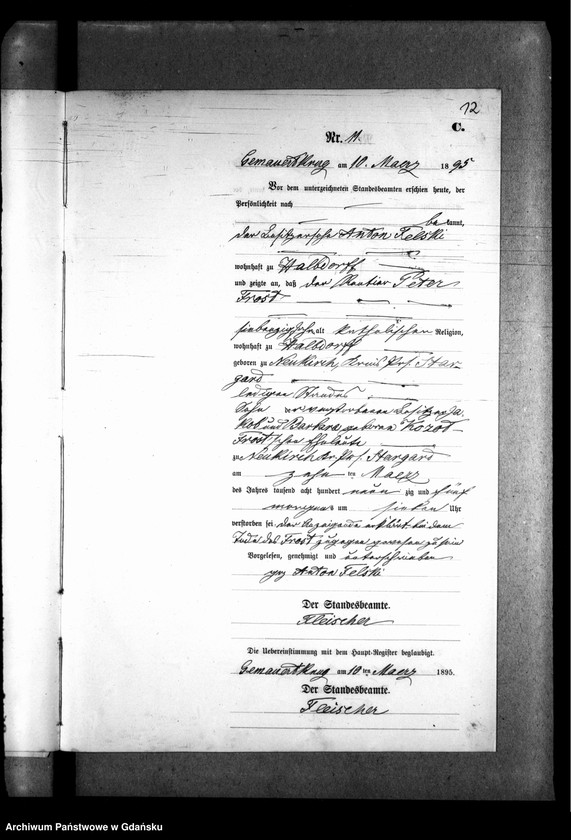 12
C.
Nr. 11.
Gemauert Krug am 10. Maerz 1895
Vor dem unterzeichneten Standesbeamten erschien heute, der
Persönlichkeit nach
bekannt,
der Besitzersohn Anton Felski
wohnhaft zu Halbdorff
und zeigte an, daß der Rentier Peter
Frost
siebenzig Jahr alt katholischer Religion,
wohnhaft zu Halbdorff
geboren zu Neukirch, Kreis Prß. Star-
gard
ledigen Standes
Sohn der verstorbenen Besitzer Ja-
kob und Barbara geborene
Frost'schen Eheleute
zu Neukirch Kr. Prß. Stargard
am zehn ten Maerz
des Jahres tausend acht hundert neun zig und fünf
morgens um sieben Uhr
verstorben sei. der Anzeigende erklärt bei dem
Tode des Frost zugegen gewesen zu sein
Vorgelesen, genehmigt und unterschrieben
gez Anton Felski
Der Standesbeamte.
Fleischer
Die Uebereinstimmung mit dem Haupt-Register beglaubigt.
Gemauert Krug am 10 ten Maerz 1895.
Der Standesbeamte.
Fleischer
Archiwum Państwowe w Gdańsku